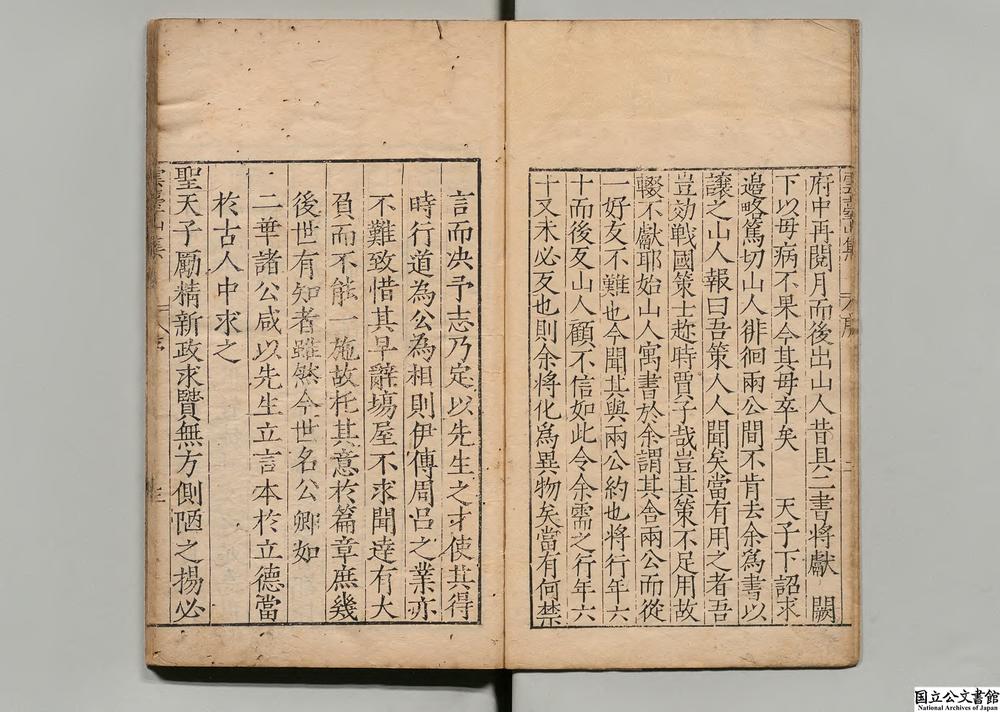 府中再閱月而後出山人昔具二書將獻　闕
下以母病不果今其母卒矣　　天子下詔求
邊略篤切山人徘徊兩公間不肯去余爲書以
讓之山人報曰吾策人人聞矣當有用之者吾
豈効戰國策士趂時賈子哉豈其策不足用故
輟不獻耶始山人寓書於余謂其舍兩公而從
一好友不難也今聞其與兩公約也將行年六
十而後友山人顧不信如此令余需之行年六
十又未必友也則余將化爲異物矣當有何禁
言而決予志乃定以先生之才使其得
時行道為公為相則伊傅周呂之業亦
不難致惜其早辭場屋不求聞達有大
負而不能一施故托其意於篇章庶幾
後世有知者雖然今世名公卿如
二華諸公咸以先生立言本於立德當
於古人中求之
聖天子勵精新政求賢無方側陋之揚必
雲臺山集 序 三
国立公文書館
National Archives of Japan